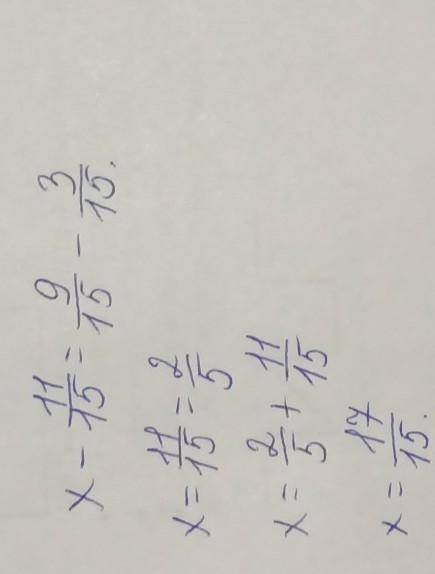 x - 11/15 = 9/15 - 3/15.
x = 11/15 = 2/5
x = 2/5 + 11/15
x = 17/15.